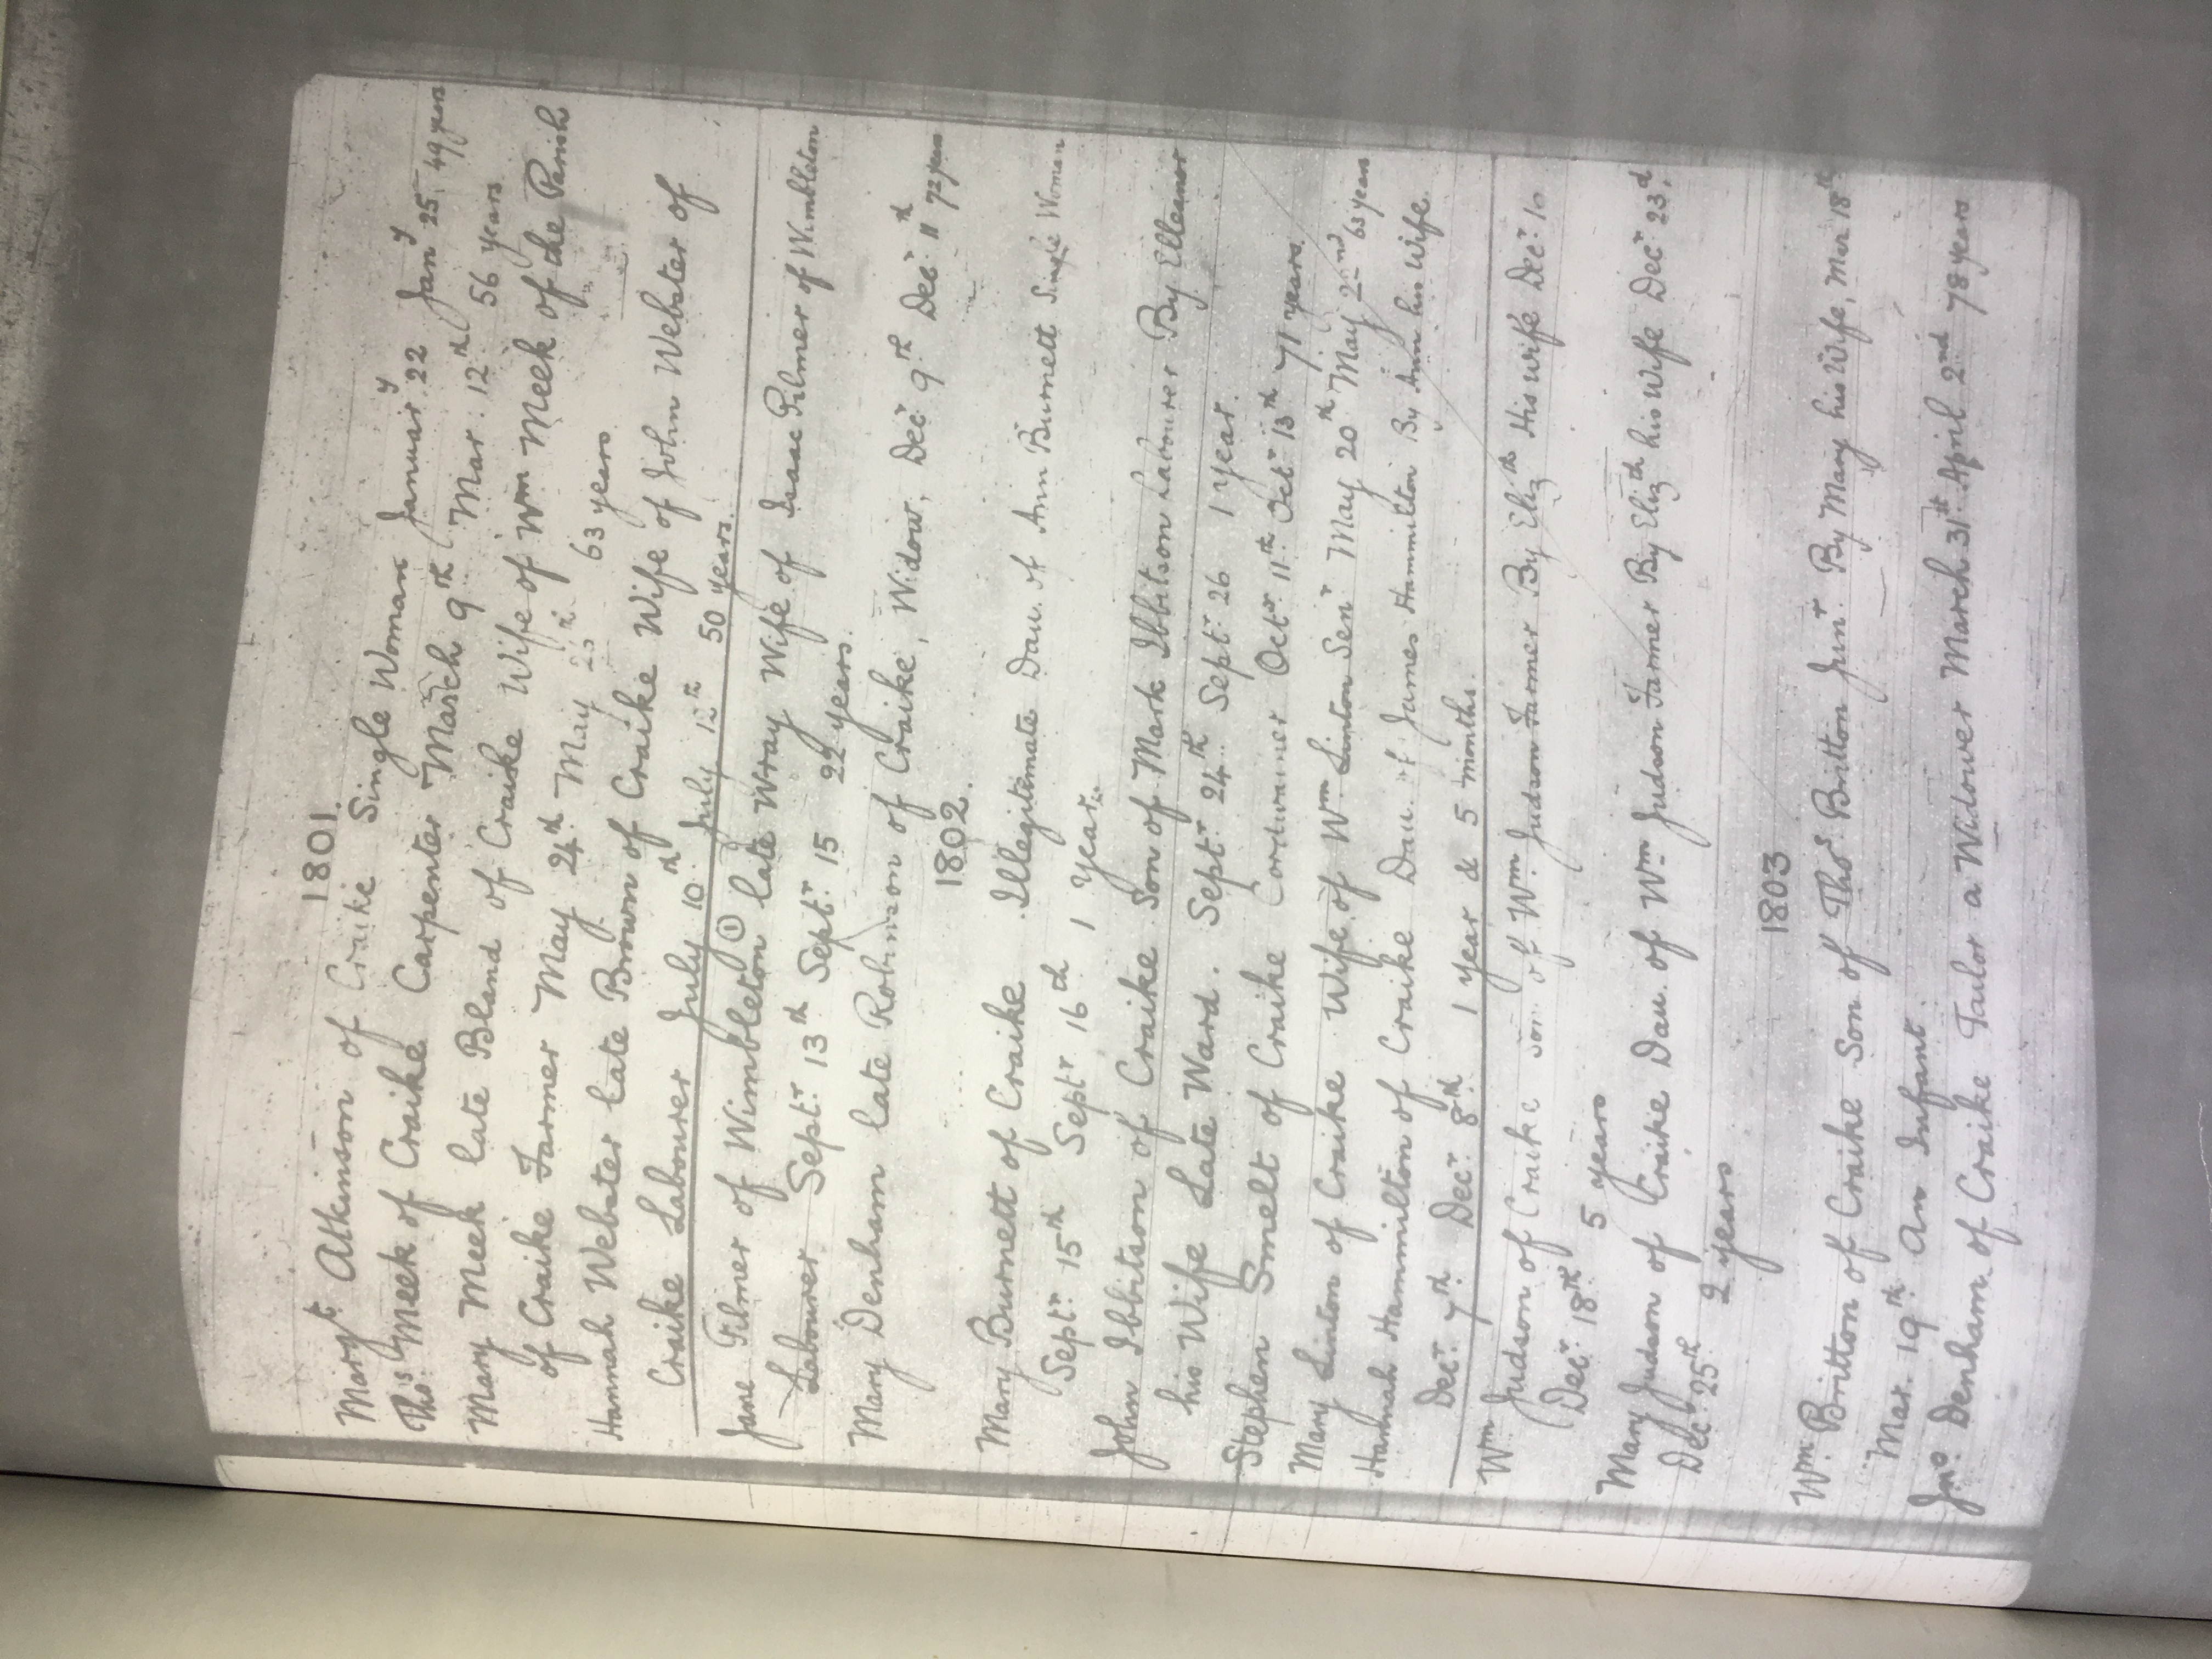 1801.
Maryt. Atkinson of Craike Single Woman Januar.y 22 Jan.y 25. 49 years
Thos. Meek of Craike Carpenter March 9th. Mar. 12th. 56 years.
Mary Meek late Bland of Craike Wife of Wm Meek of the Parish
of Craike Farmer May 24th. May 63 years.
Hannah Webster late Brown of Craike Wife of John Webster of
Craike Labourer July 10th July 12th 50 years.
Jane Filmer of Wimbleton ① late Wray Wife of Isaac Filmer of Wimbleton
Labourer Septr. 13th Septr. 15 22 years.
Mary Denham late Robinson of Craike, Widow, Decr. 9th Decr. 11th 72 years
1802.
Mary Burnett of Craike Illegitimate Dau. of Ann Burnett Single Woman
Septr. 15th Septr 16th 1 Year.
John Ibbitson of Craike Son of Mark Ibbitson Labourer By Elleanor
his Wife Late Ward. Septr. 24th. Septr. 26 1 year.
Stephen Smelt of Craike Cordwainer Octr. 11th Octr. 13th 71 years.
Mary Linton of Craike Wife of Wm. Linton Senr. May 20th May 22nd 63 years
Hannah Hammilton of Craike Dau. of James Hammilton By Ann his Wife.
Decr. 7th. Decr. 8th. 1 year & 5 months.
Wm Judson of Craike son of Wm. Judson Farmer By Elizth His wife Decr. 10
Decr. 18th. 5 years
Mary Judson of Craike Dau. of Wm. Judson Farmer By Elizth his Wife Decr. 23d.
Decr. 25th 2 years
1803
Wm. Britton of Craike Son of Thos. Britton Junr. By Mary his Wife, Mar 18th
Mar. 19th. An Infant.
Jno. Denham of Craike Tailor a Widower March 31st April 2nd 78 years